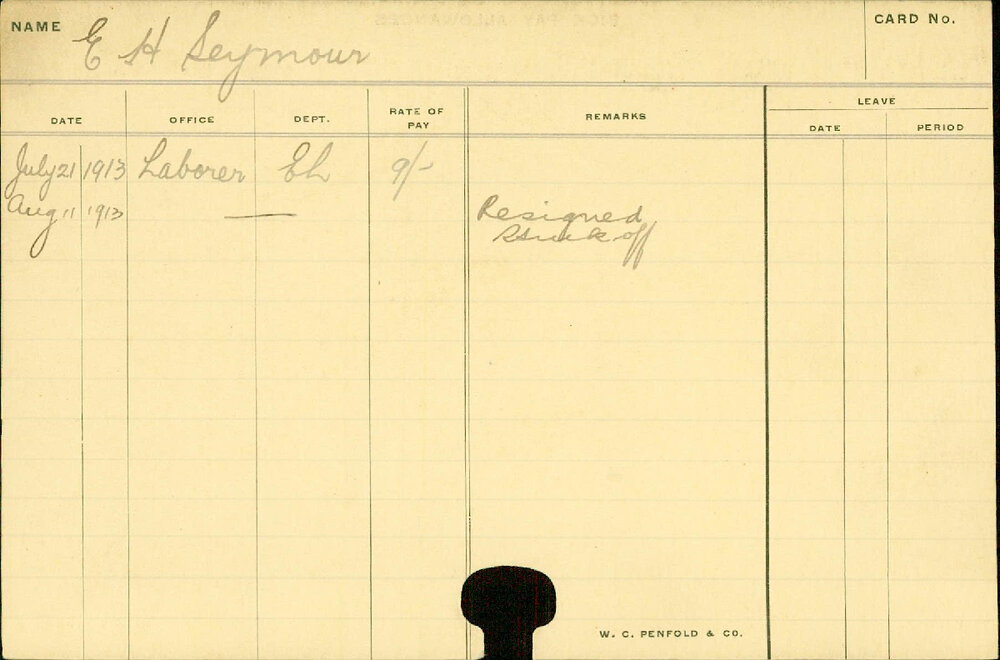 NAME E H Seymour CARD No.
DATE OFFICE DEPT. RATE OF PAY REMARKS LEAVE
DATE PERIOD
July 21 1913 Laborer EL 9/-
Aug 11 1913 — Resigned
Struck off
W. C. PENFOLD & CO.